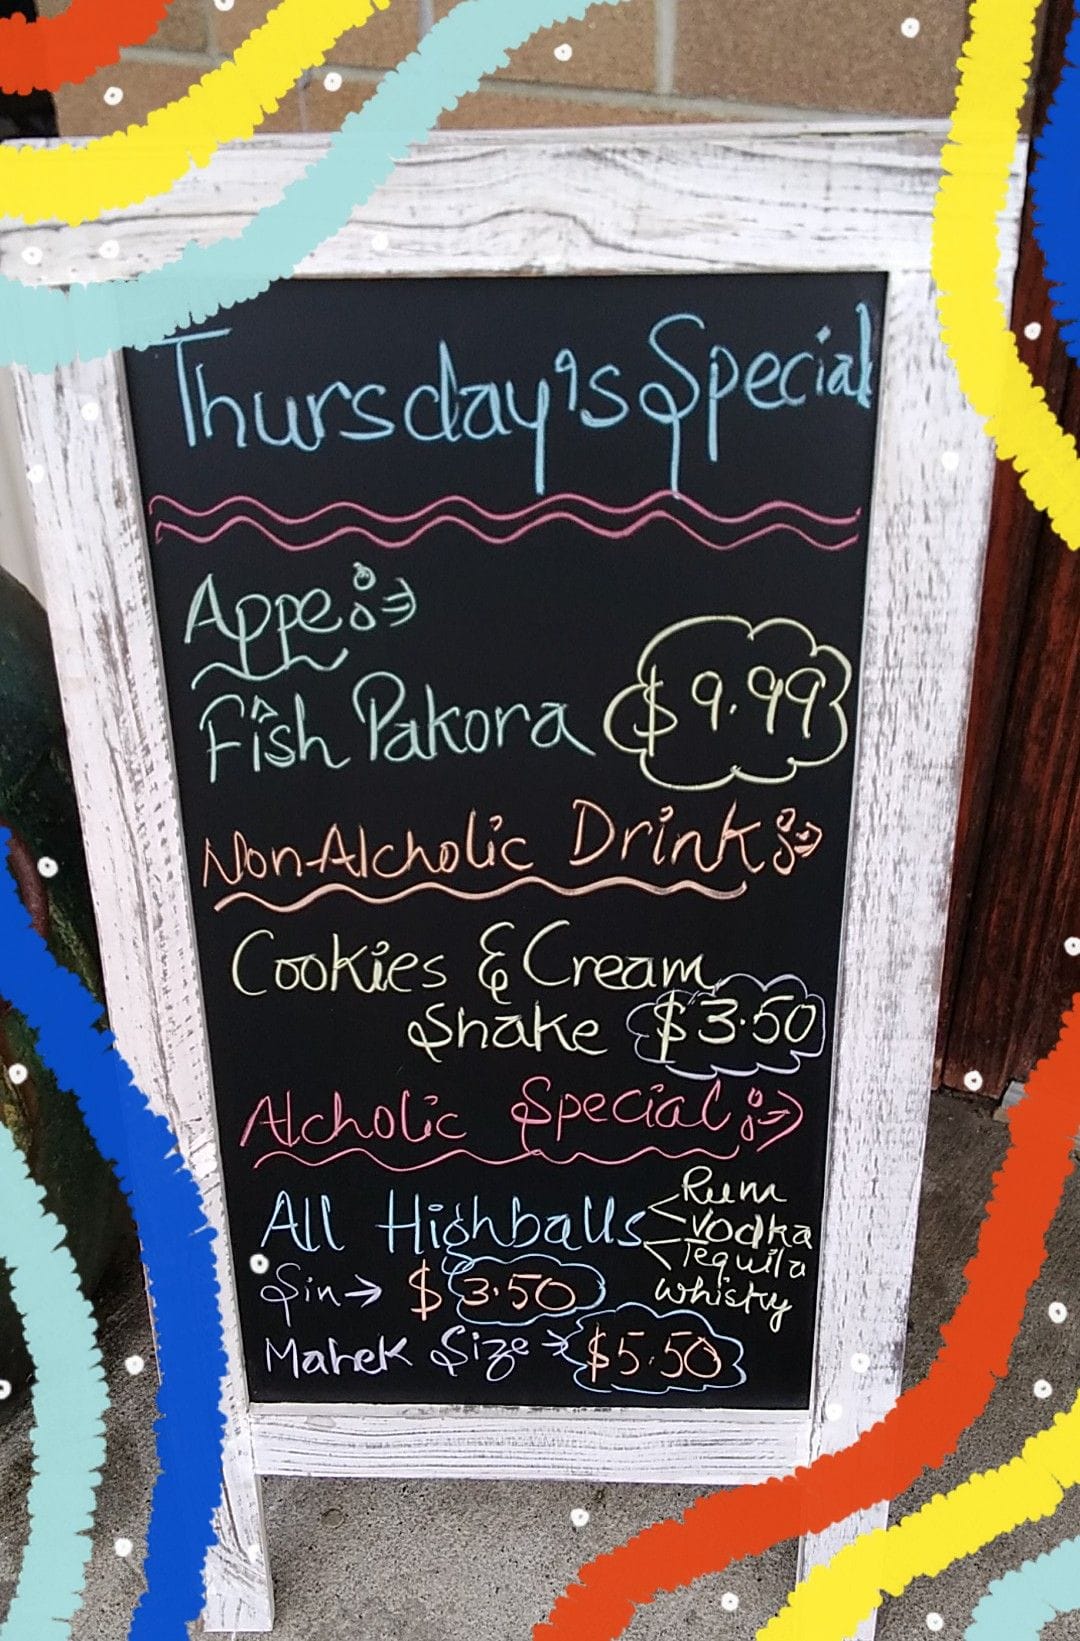 Thursday's Special
Appe:→
Fish Pakora $9.99
Non-Alcholic Drink:→
Cookies & Cream
Shake $3.50
Alcholic Special:→
All Highballs Rum
Vodka
Tequila
Whisky
Sin→ $3.50
Mahek Size→ $5.50